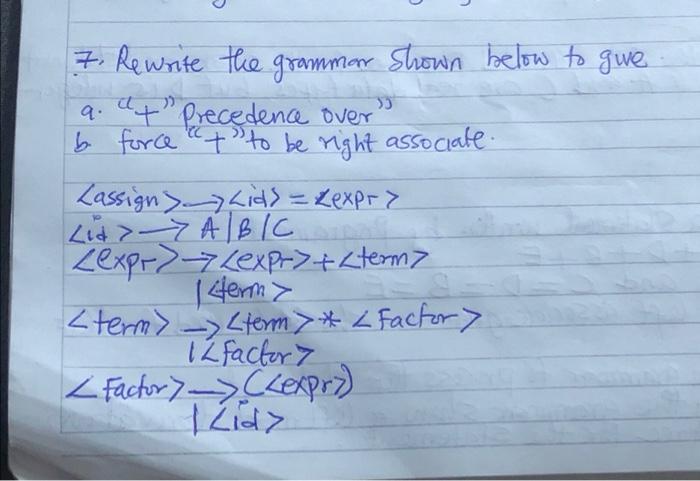 7. Rewrite the grammar shown below to give
a. "+" Precedence over"
b force "+" to be right associate.
<assign> → <id> = <expr>
<id> → A | B | C
<expr> → <expr> + <term>
| <term>
<term> → <term> * <Factor>
| <factor>
<Factor> → (<expr>)
| <id>